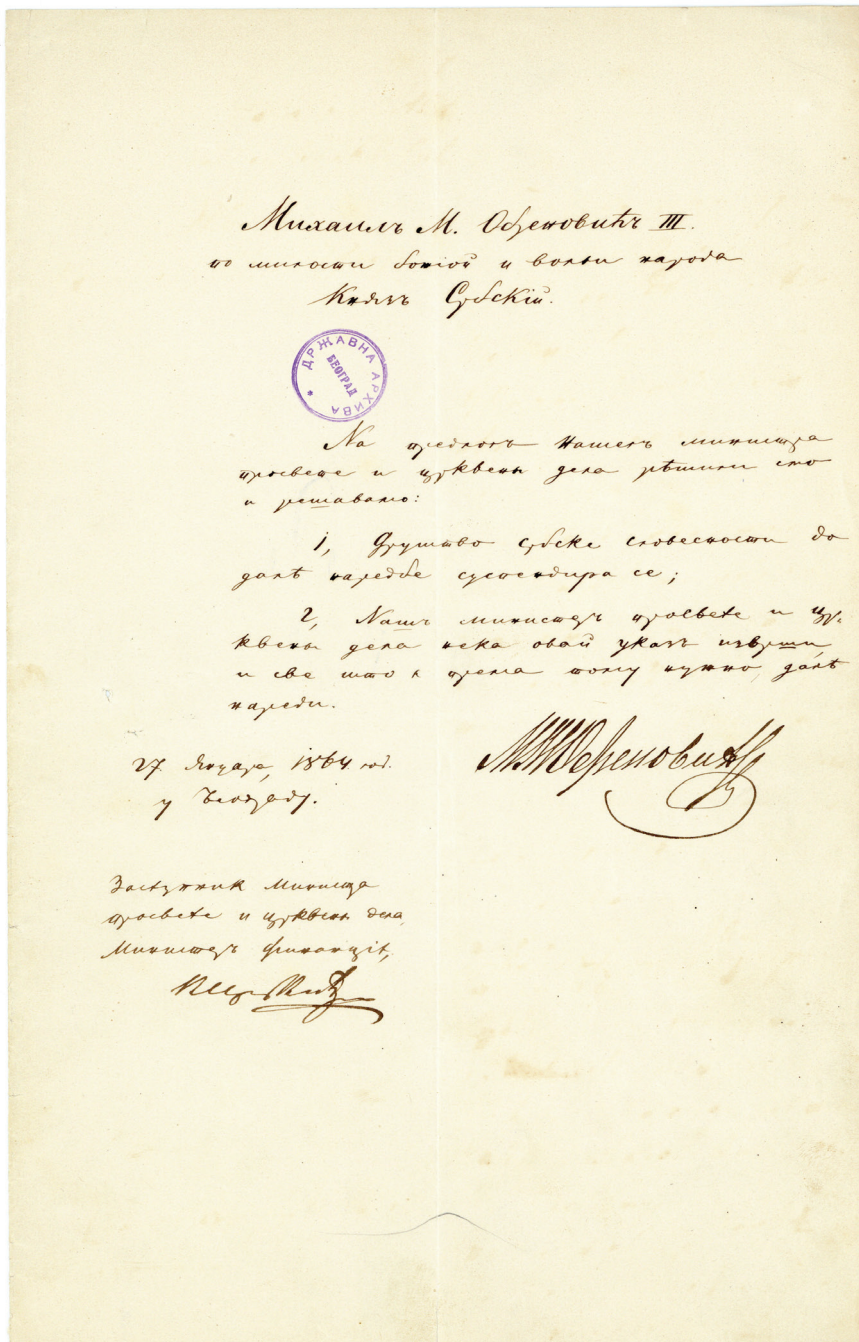 Михаилъ М. Обреновићъ III.
по милости божіой и вольи народа
Князъ Србскій.
ДРЖАВНА АРХИВА
БЕОГРАД
На предлогъ Нашегъ министра
просвете и црквены дела рѣшили смо
и решавамо:
1, Друштво србске словесности до
далѣ наредбе суспендира се;
2, Нашъ министеръ просвете и цр-
квены дела нека овай указъ изврши,
и све што є према тому нужно, далѣ
нареди.
27 Януара, 1864 год.
у Београду.
М. М. Обреновићъ
Заступник Министра
просвете и црквены дела,
Министеръ финанціє,